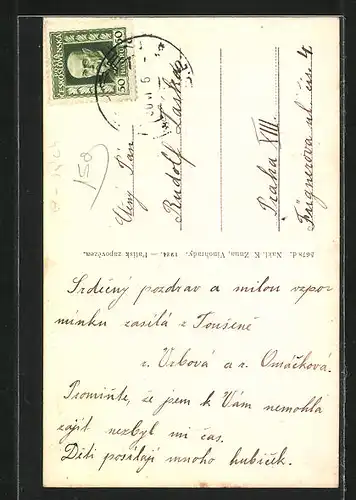 50 50
ČESKOSLOVENSKÁ
150
Ctěný Pán
Rudolf Laska
Praha XIII.
Fügnerova ul. čís. 4.
5678 d. Nakl. K. Znua, Vinohrady. 1924. — Patisk zapovězen.
Srdečný pozdrav a milou vzpo-
mínku zasílá z Toušeně
r. Vrbová a r. Omáčková.
Promiňte, že jsem k Vám nemohla
zajít nezbyl mi čas.
Děti posílají mnoho hubiček.